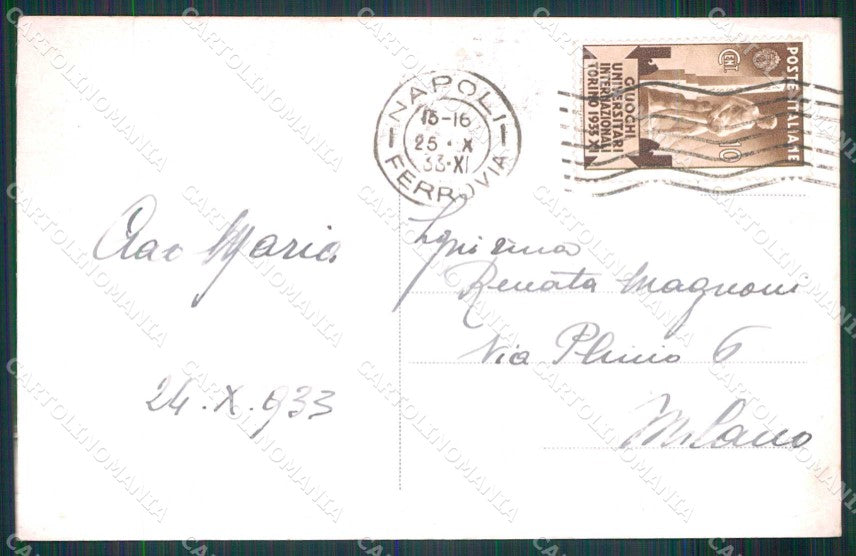 Ciao Maria
24.X.933
NAPOLI
15-16
25 · X
33·XI
FERROVIA
POSTE ITALIANE
CENT
10
GIUOCHI
UNIVERSITARI
INTERNAZIONALI
TORINO 1933 XI
Renata Magnoni
Via Plinio 6
Milano
CARTOLINOMANIA